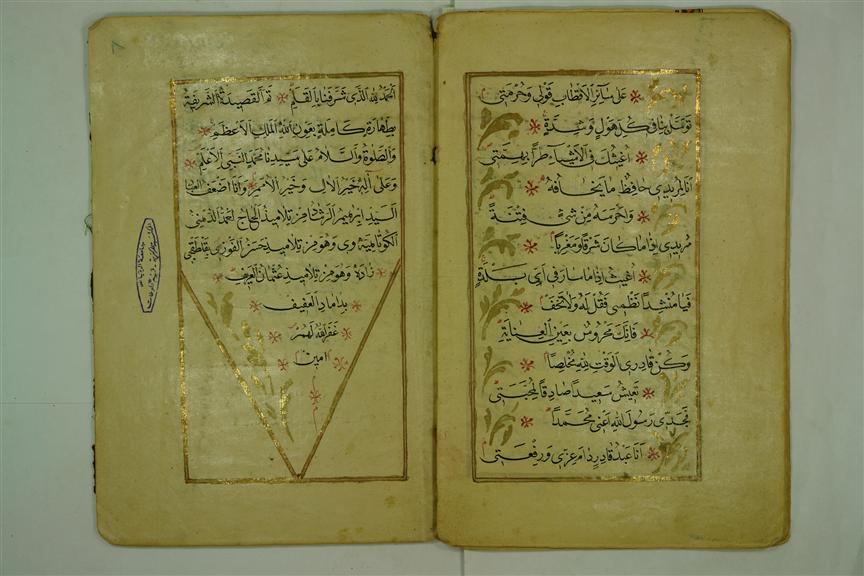 على سائر الأقطاب قولي وحرمتي
توسل بنا في كل هول وشدة
أغيثك في الأشياء طرا بهمتي
أنا لمريدي حافظ ما يخافه
وأحرسه من كل شر وفتنة
مريدي إذا ما كان شرقا ومغربا
أغثه إذا ما سار في أي بلدة
فيا منشدا نظمي فقله ولا تخف
فإنك محروس بعين العناية
وكن قادري الوقت لله مخلصا
تعيش سعيدا صادقا لمحبتي
فجدي رسول الله أعني محمدا
أنا عبد قادر دام عزي ورفعتي
الحمد لله الذي شرفنا بالقلم تم القصيدة الشريفة
بطهارة كاملة بعون الله الملك الأعظم
والصلوة والسلام على سيدنا محمد النبي الأعلم
وعلى آله خير الآل وخير الأمم وأنا أضعف
السيد إبرهيم الرشدي من تلاميذ الحاج أحمد الذهني
وهو من تلاميذ حسن الفوزي
زاده وهو من تلاميذ عثمان
بداماد العفيف
غفر الله لهم
امين